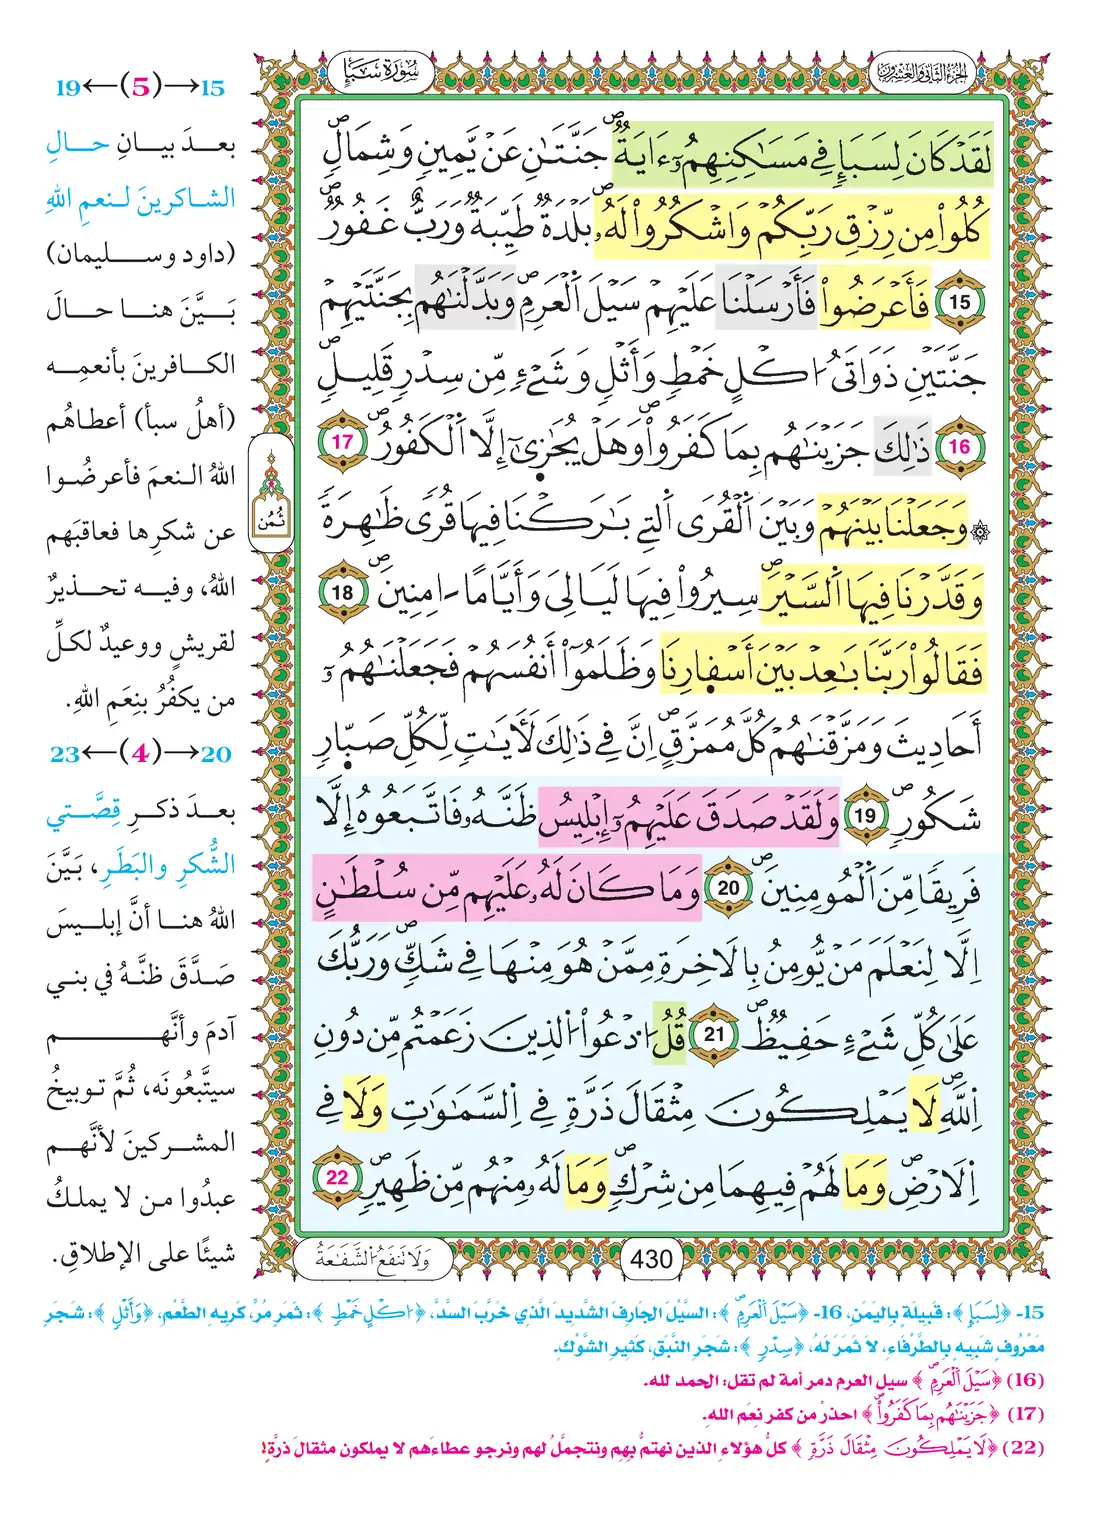 الجزء الثاني والعشرون
سُورَةُ سَبَإٍ
لَقَدْ كَانَ لِسَبَإٍ فِي مَسَٰكِنِهِمُۥٓ ءَايَةٞۖ جَنَّتَٰنِ عَنْ يَّمِينٖ وَشِمَالٖۖ
كُلُواْ مِن رِّزْقِ رَبِّكُمْ وَاشْكُرُواْ لَهُۥۖ بَلْدَةٞ طَيِّبَةٞ وَرَبٌّ غَفُورٞۖ
15 فَأَعْرَضُواْ فَأَرْسَلْنَا عَلَيْهِمْ سَيْلَ اَلْعَرِمِۖ وَبَدَّلْنَٰهُم بِجَنَّتَيْهِمْ
جَنَّتَيْنِ ذَوَاتَىُ ا۟كْلٍ خَمْطٖ وَأَثْلٖ وَشَےْءٖ مِّن سِدْرٖ قَلِيلٖۖ
16 ذَٰلِكَ جَزَيْنَٰهُم بِمَا كَفَرُواْۖ وَهَلْ يُجَٰزَىٰٓ إِلَّا اَلْكَفُورُۖ 17
۞ وَجَعَلْنَا بَيْنَهُمْ وَبَيْنَ اَلْقُرَى اَلتِے بَٰرَكْنَا فِيهَا قُرىٗ ظَٰهِرَةٗ
وَقَدَّرْنَا فِيهَا اَلسَّيْرَۖ سِيرُواْ فِيهَا لَيَالِىَ وَأَيَّاماً ـٰامِنِينَۖ 18
فَقَالُواْ رَبَّنَا بَٰعِدْ بَيْنَ أَسْفٰارِنَا وَظَلَمُوٓاْ أَنفُسَهُمْ فَجَعَلْنَٰهُمُۥٓ
أَحَادِيثَ وَمَزَّقْنَٰهُمْ كُلَّ مُمَزَّقٍۖ اِنَّ فِي ذَٰلِكَ لَأٓيَٰتٖ لِّكُلِّ صَبّٰارٖ
شَكُورٖۖ 19 وَلَقَدْ صَدَقَ عَلَيْهِمُۥٓ إِبْلِيسُ ظَنَّهُۥ فَاتَّبَعُوهُ إِلَّا
فَرِيقاٗ مِّنَ اَلْمُومِنِينَۖ 20 وَمَا كَانَ لَهُۥ عَلَيْهِم مِّن سُلْطَٰنٍ
اِلَّا لِنَعْلَمَ مَنْ يُّومِنُ بِالَاخِرَةِ مِمَّنْ هُوَ مِنْهَا فِي شَكّٖۖ وَرَبُّكَ
عَلَىٰ كُلِّ شَےْءٍ حَفِيظٞۖ 21 قُلُ ا۟دْعُواْ اُلذِينَ زَعَمْتُم مِّن دُونِ
اِللَّهِۖ لَا يَمْلِكُونَ مِثْقَالَ ذَرَّةٖ فِي اِلسَّمَٰوَٰتِ وَلَا فِي
اِلَارْضِۖ وَمَا لَهُمْ فِيهِمَا مِن شِرْكٖۖ وَمَا لَهُۥ مِنْهُم مِّن ظَهِيرٖۖ 22
ثُمُن
430
وَلَا تَنفَعُ اُلشَّفَٰعَةُ
15→(5)←19
بعدَ بيانِ حالِ
الشاكرينَ لنعمِ اللهِ
(داود وسليمان)
بَيَّنَ هنا حالَ
الكافرينَ بأنعمِه
(أهلُ سبأ) أعطاهُم
اللهُ النعمَ فأعرضُوا
عن شكرِها فعاقبَهم
اللهُ، وفيه تحذيرٌ
لقريشٍ ووعيدٌ لكلِّ
من يكفُرُ بنِعَمِ اللهِ.
20→(4)←23
بعدَ ذكرِ قِصَّتي
الشُّكرِ والبَطَرِ، بَيَّنَ
اللهُ هنا أنَّ إبليسَ
صَدَّقَ ظنَّهُ في بني
آدمَ وأنَّهم
سيتَّبعُونَه، ثُمَّ توبيخُ
المشركينَ لأنَّهم
عبدُوا من لا يملكُ
شيئًا على الإطلاقِ.
15- ﴿لِسَبَإٍ﴾: قَبِيلَةٍ بِاليَمَنِ، 16- ﴿سَيْلَ اَلْعَرِمِۖ﴾: السَّيْلَ الجَارِفَ الشَّدِيدَ الَّذِي خَرَّبَ السَّدَّ، ﴿ا۟كْلٍ خَمْطٖ﴾: ثَمَرٍ مُرٍّ، كَرِيهِ الطَّعْمِ، ﴿وَأَثْلٖ﴾: شَجَرٍ
مَعْرُوفٍ شَبِيهٍ بِالطَّرْفَاءِ، لَا ثَمَرَ لَهُ، ﴿سِدْرٖ﴾: شَجَرِ النَّبَقِ، كَثِيرِ الشَّوْكِ.
(16) ﴿سَيْلَ اَلْعَرِمِۖ﴾ سيل العرم دمر أمة لم تقل: الحمد لله.
(17) ﴿جَزَيْنَٰهُم بِمَا كَفَرُواْۖ﴾ احذرْ من كفر نِعَم اللهِ.
(22) ﴿لَا يَمْلِكُونَ مِثْقَالَ ذَرَّةٖ﴾ كلُّ هؤلاءِ الذين نهتمُّ بهِم ونتجمَّلُ لهم ونرجو عطاءَهم لا يملكون مثقالَ ذرَّةٍ!